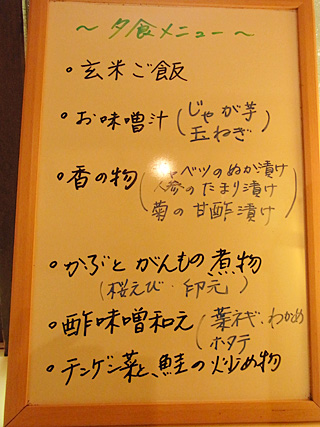 ～夕食メニュー～
・玄米ご飯
・お味噌汁(じゃが芋
玉ねぎ)
・香の物(キャベツのぬか漬け
人参のたまり漬け
菊の甘酢漬け)
・かぶとがんもの煮物
(桜えび・印元)
・酢味噌和え(葉ネギ、わかめ
ホタテ)
・テンゲシ菜と、鮭の炒め物